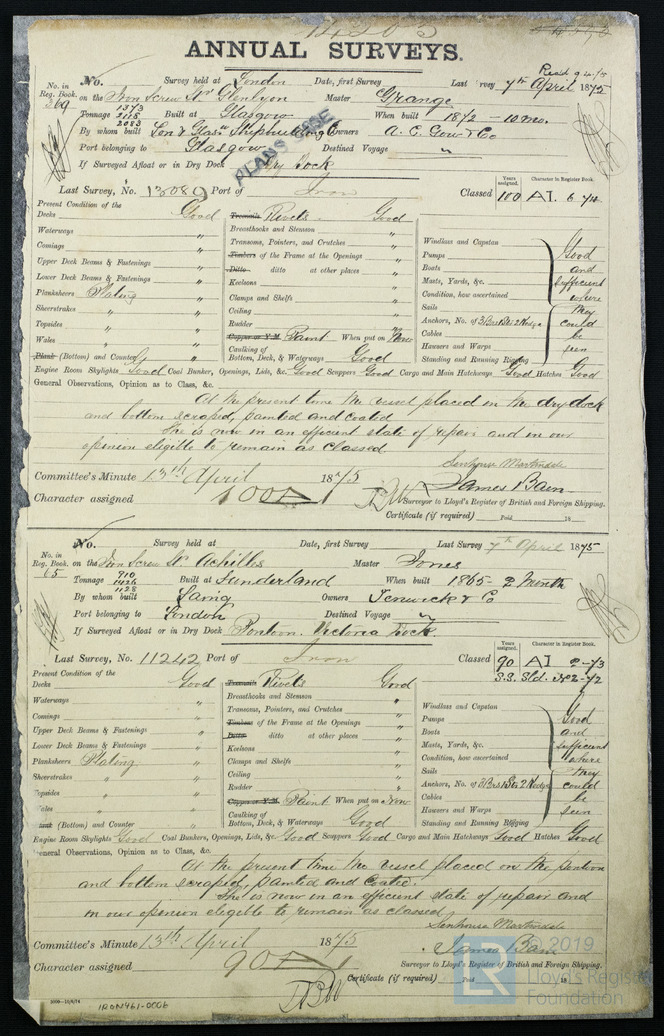 ANNUAL SURVEYS.
No. Survey held at London Date, first Survey Last Survey 7th April 1875
Recd 9.4.75
No. in Reg. Book. 269 on the Iron Screw Str Glenlyon Master Grange
Tonnage 1373 2118 2083 Built at Glasgow When built 1872 - 10 mo.
By whom built Lon & Glasw Shipbuilding Co Owners A. C. Gow & Co
Port belonging to Glasgow Destined Voyage "
PLANS CASE
If Surveyed Afloat or in Dry Dock Dry Dock
Last Survey, No. 13089 Port of Iron Classed
Years assigned. Character in Register Book.
100 A1. 6 74
Present Condition of the
Decks Good
Waterways "
Comings "
Upper Deck Beams & Fastenings "
Lower Deck Beams & Fastenings "
Planksheers Plating "
Sheerstrakes "
Topsides "
Wales "
Plank (Bottom) and Counter "
Treenails Rivets Good
Breasthooks and Stemson "
Transoms, Pointers, and Crutches "
Timbers of the Frame at the Openings "
Ditto ditto at other places "
Keelsons "
Clamps and Shelfs "
Ceiling "
Rudder "
Copper or Y.M. Paint When put on Now
Caulking of Bottom, Deck, & Waterways Good
Windlass and Capstan
Pumps
Boats
Masts, Yards, &c.
Condition, how ascertained
Sails
Anchors, No. of 3 Brs 1 Str 2 Kedge
Cables
Hawsers and Warps
Standing and Running Rigging
Good and sufficient where may could be seen
Engine Room Skylights Good Coal Bunker, Openings, Lids, &c. Good Scuppers Good Cargo and Main Hatchways Good Hatches Good
General Observations, Opinion as to Class, &c.
At the present time the vessel placed in the dry dock
and bottom scraped, painted and coated
She is now in an efficient state of repair and in our
opinion eligible to remain as classed
Senhouse Martindale
Committee's Minute 13th April 1875 James Bain
Character assigned 100A
Surveyor to Lloyd's Register of British and Foreign Shipping.
Certificate (if required) Paid 18
No. Survey held at Date, first Survey Last Survey 7th April 1875
No. in Reg. Book. 65 on the Iron Screw Str Achilles Master Jones
Tonnage 910 1426 1128 Built at Sunderland When built 1865 - 2 Month
By whom built Laing Owners Fenwick & Co
Port belonging to London Destined Voyage "
If Surveyed Afloat or in Dry Dock Pontoon. Victoria Dock.
Last Survey, No. 11242 Port of Iron Classed
Years assigned. Character in Register Book.
90 A1 2-73
S.S. Sld. No2-72
Present Condition of the
Decks Good
Waterways "
Comings "
Upper Deck Beams & Fastenings "
Lower Deck Beams & Fastenings "
Planksheers Plating "
Sheerstrakes "
Topsides "
Wales "
Plank (Bottom) and Counter "
Treenails Rivets Good
Breasthooks and Stemson "
Transoms, Pointers, and Crutches "
Timbers of the Frame at the Openings "
Ditto ditto at other places "
Keelsons "
Clamps and Shelfs "
Ceiling "
Rudder "
Copper or Y.M. Paint When put on Now
Caulking of Bottom, Deck, & Waterways Good
Windlass and Capstan
Pumps
Boats
Masts, Yards, &c.
Condition, how ascertained
Sails
Anchors, No. of 3 Brs 1 Str 2 Kedge
Cables
Hawsers and Warps
Standing and Running Rigging
Good and sufficient where may could be seen
Engine Room Skylights Good Coal Bunkers, Openings, Lids, &c Good Scuppers Good Cargo and Main Hatchways Good Hatches Good
General Observations, Opinion as to Class, &c.
At the present time the vessel placed on the pontoon
and bottom scraped, painted and coated.
She is now in an efficient state of repair and
in our opinion eligible to remain as classed
Senhouse Martindale
Committee's Minute 13th April 1875 James Bain
Character assigned 90 A
Surveyor to Lloyd's Register of British and Foreign Shipping.
Certificate (if required) Paid 18
IRON461-0006
LR © 2019
Lloyd's Register
Foundation